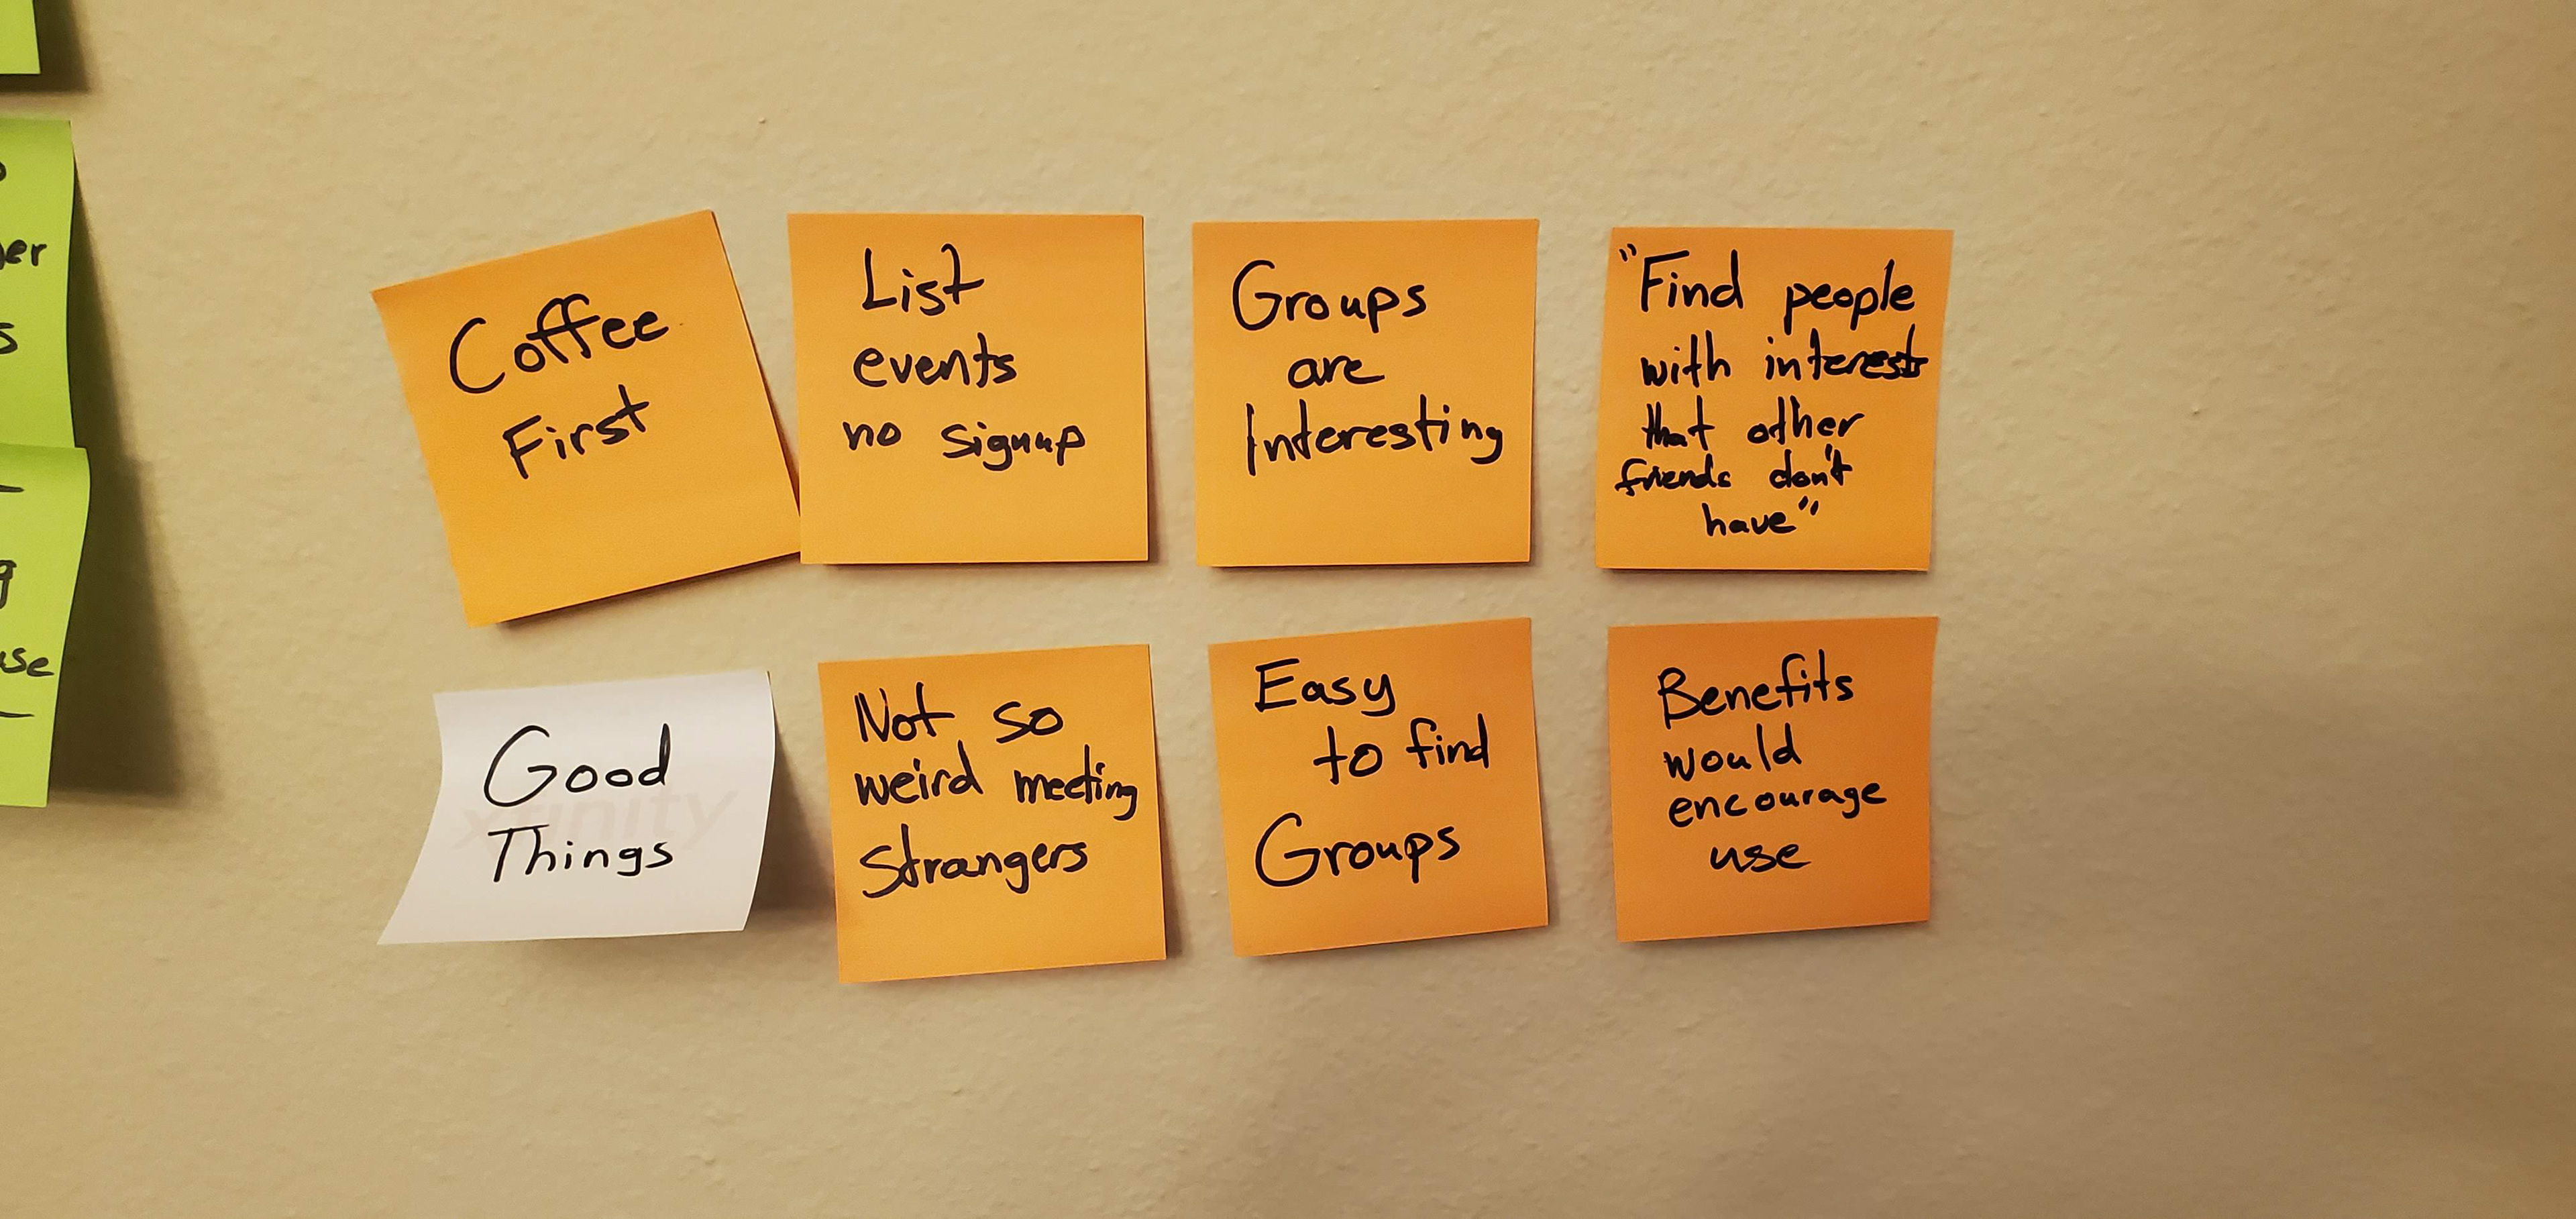 er
s
g
use
Coffee
First
List
events
no signup
Groups
are
Interesting
"Find people
with interests
that other
friends don't
have"
Good
Things
xfinity
Not so
weird meeting
strangers
Easy
to find
Groups
Benefits
would
encourage
use